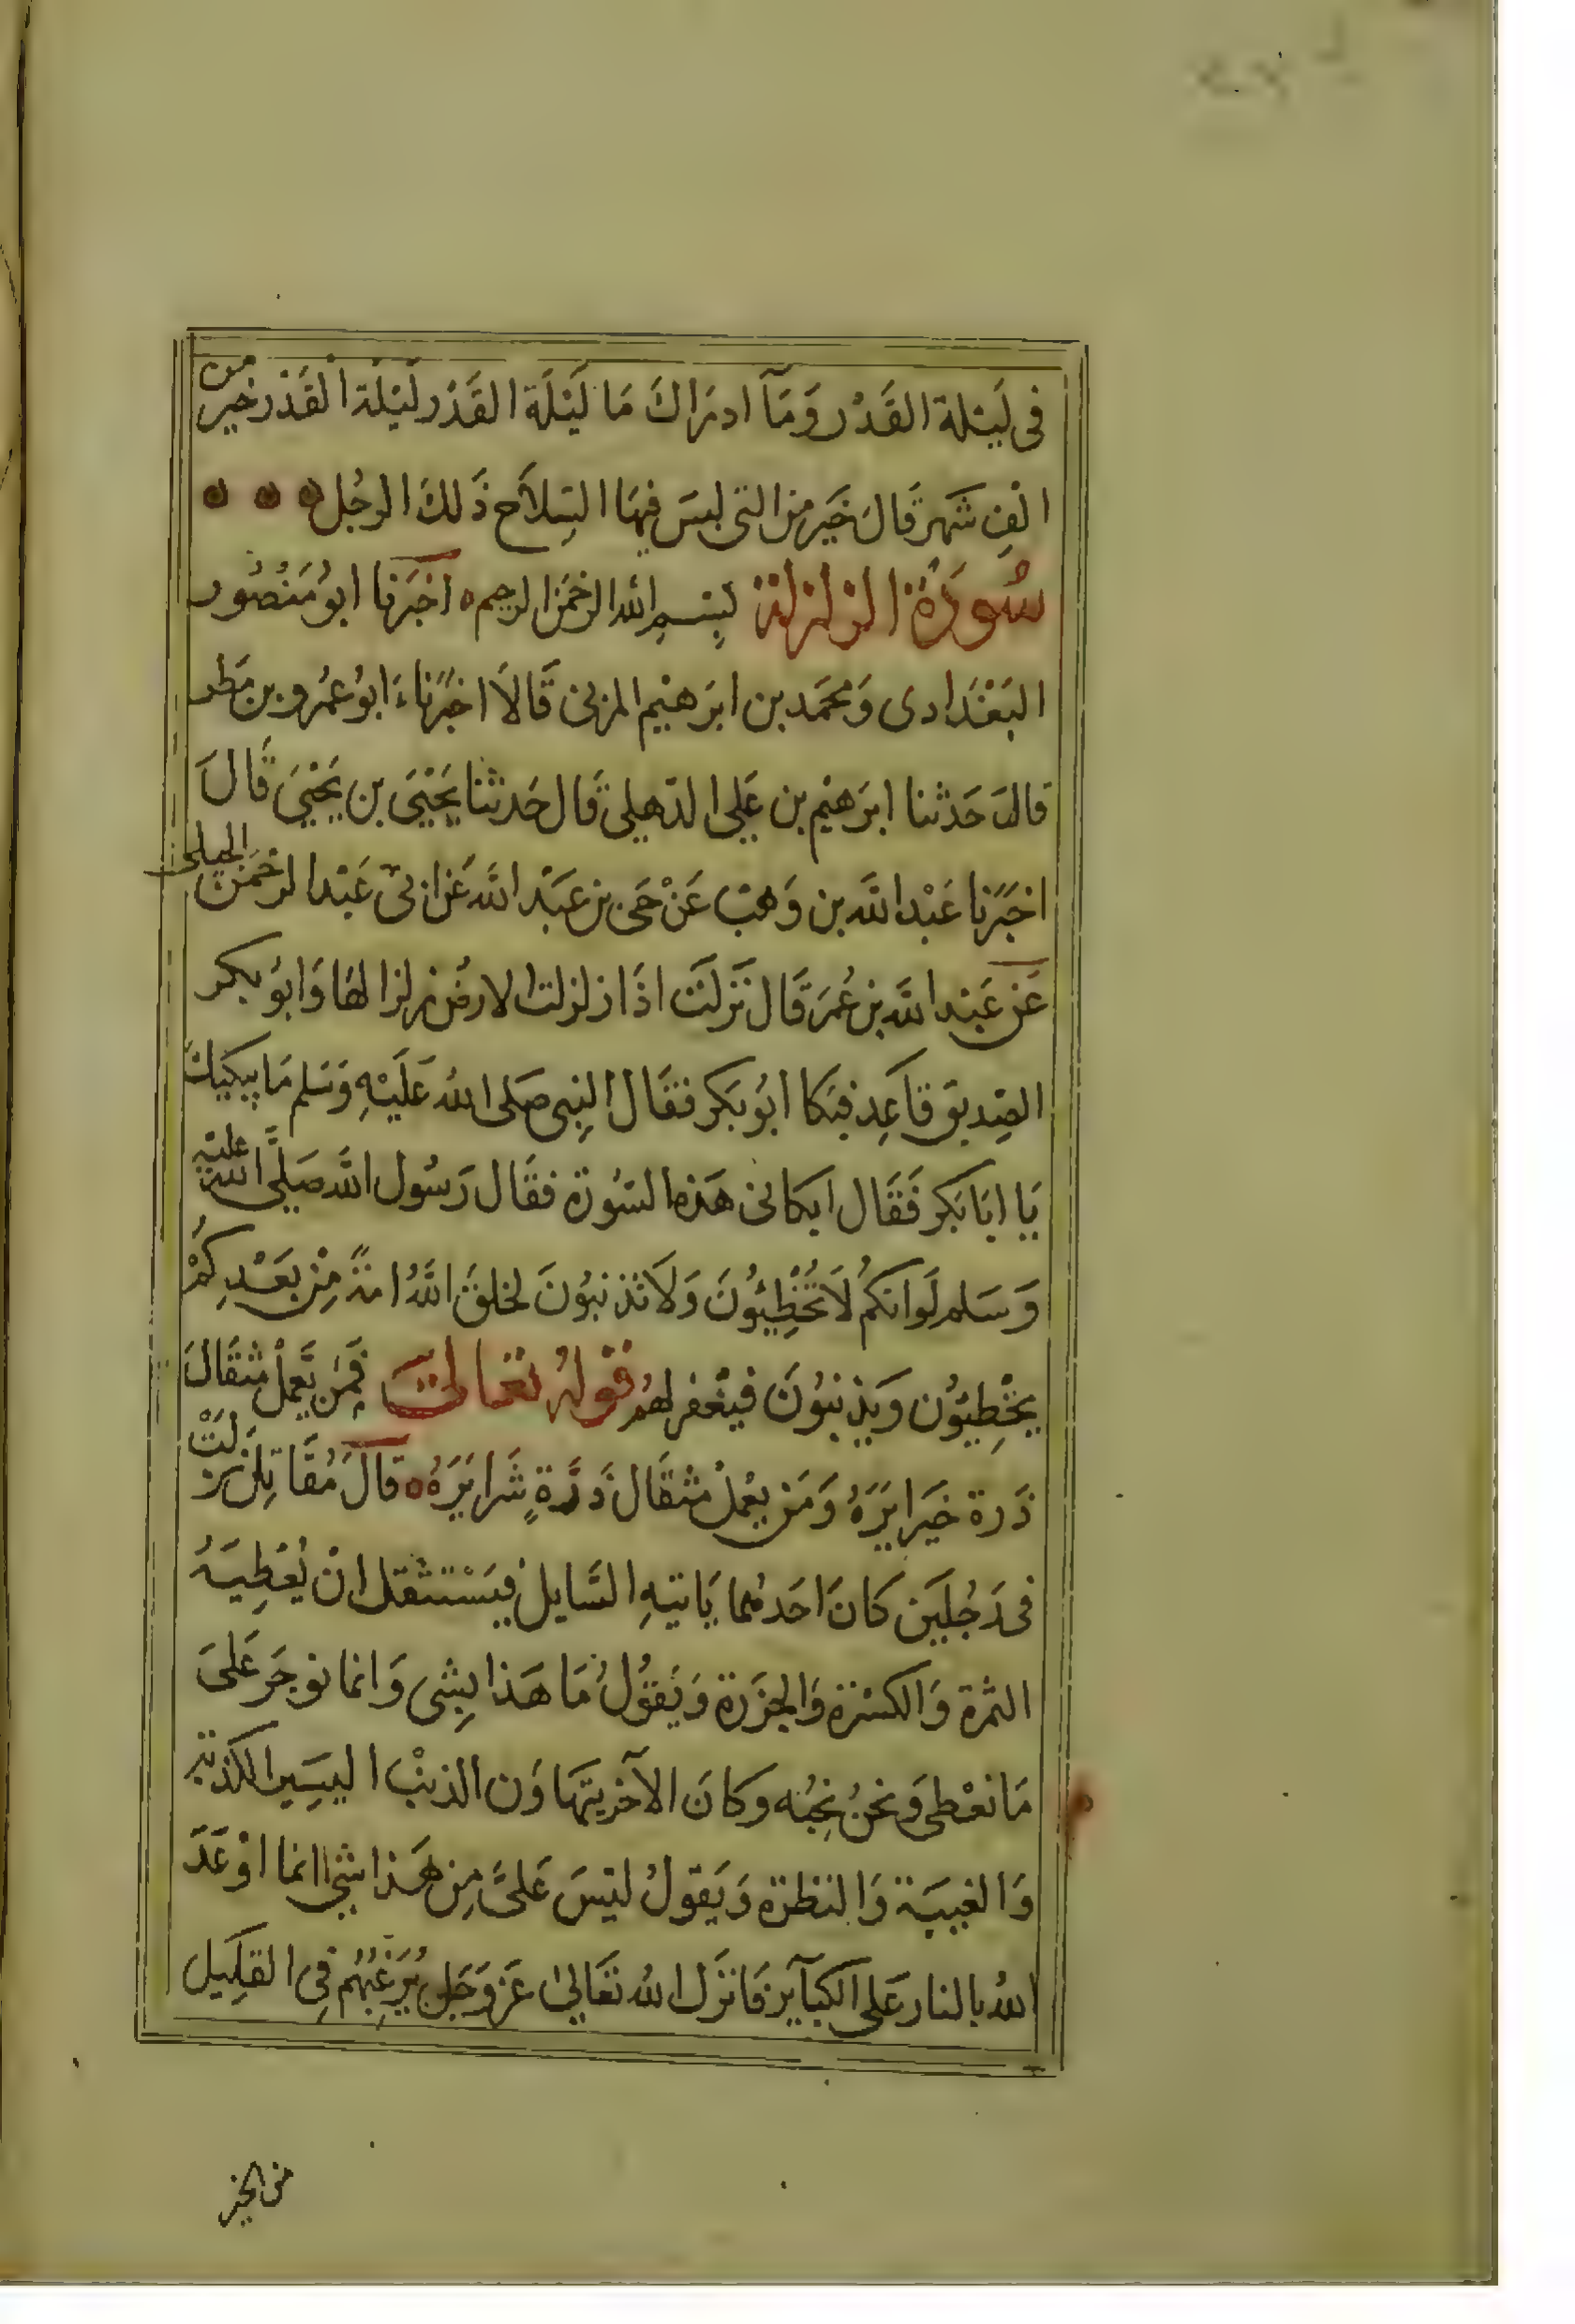 فى لَيْلة القَدْر وَمَآ ادراكَ مَا لَيْلَة القَدْر لَيْلَة القَدْر خير من
الف شَهر قَالَ خَير من التى لبسَ فيهَا السِلاَح ذَلكَ الرجُل
سُورَةُ الزلزلة بِسم الله الرحمَن الرحيم اخبَرَنا ابوُ مَنْصُور
البَغْدَادى وَمحمَد بن ابرَهيْم المزنى قَالاَ اخبَرناءَ ابوُ عمْرو بن مَطر
قالَ حَدثنا ابرَهيْم بن عَلِي الذهلي قَال حَدثنا يَحْيَى بن يَحْيَي قَالَ
اخبَرَنا عَبْد الله بن وَهب عَنْ حَى بن عَبْد الله عَن ابىْ عَبْد الرحمَن الجبلى
عَن عَبْد الله بن عُمرَ قَال نَزلَت اذَا زلزلت الارضُ زلزالهَا وَابوُ بكر
الصِديق قاعِد فبَكا ابوُ بَكر فقَال النبِى صَلى اللهُ عَلَيْهِ وَسَلم مَا يبكيكَ
يَا ابَا بَكر فَقَال ابكانى هَذه السُورة فقَال رَسُول الله صَلَّى الله عليه
وَسَلم لَوانكمُ لاَ تُخْطِئوُنَ وَلاَ تذنبُونَ لخلقَ اللهُ امةً مِنْ بعَدِكُمْ
يخْطِيئُون وَيذنبوُنَ فيَغفر لهُم قوْلهُ تعَالىَ فَمَن يَّعملْ مثقَالَ
ذَرة خيَرا يَرَهُ وَمَن يعمَلْ مثقَال ذَرَّةٍ شَرا يَرَهُ قالَ مُقَاتِل نزلَتْ
فى رَجُلَين كَانَ احَدهُما يَاتيهِ السَّايل فيَسْتثقل انْ يُعْطِيَهُ
الثمرة وَالكسْرة وَالجوزَة وَيَقوُلُ مَا هَذا بِشى وَانما نوجَر عَلىَ
مَا نعْطى وَنحنُ نحِبُه وَكانَ الآخر يتهَاوَن الذنْب اليسَير الكذبة
وَالغيبَة وَالنظرة وَيَقولُ ليْسَ عَلىَّ مِن هَذا شئ انما اوْعَدَ
اللهُ بالنار عَلى الكبآير فَانزَل اللهُ تعَالىٰ عَز وَجَل يُرَغِبُهُم فِى القلِيل
من الخير